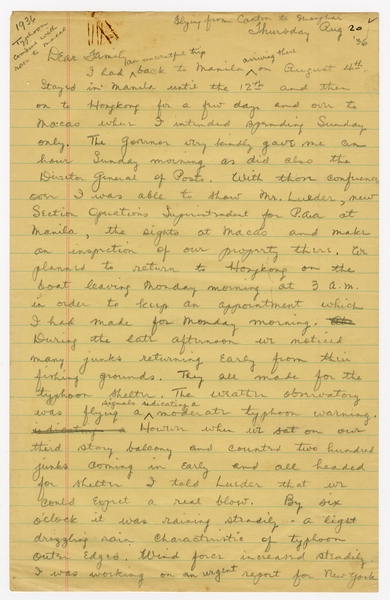 1936
Typhoon
combined with
race to Macao
Flying from Canton to Shanghai
Thursday Aug 20
'36
Dear Family
an uneventful trip arriving there
I had back to Manila on August 4th.
Stayed in Manila until the 12th and then
on to Hongkong for a few days and over to
Macao where I intended spending Sunday
only. The Governor very kindly gave me an
hour Sunday morning as did also the
Director General of Posts. With those conferences
over I was able to show Mr. Lueder, new
Section Operations Superintendent for PAA at
Manila, the sights at Macao and make
an inspection of our property there. We
planned to return to Hongkong on the
boat leaving Monday morning at 3 A.M.
in order to keep an appointment which
I had made for Monday morning.
During the late afternoon we noticed
many junks returning early from their
fishing grounds. They all made for the
typhoon shelter. The weather observatory
signals indicating a
was flying moderate typhoon warning.
indicating a However when we sat on our
third story balcony and counted two hundred
junks coming in early and all headed
for shelter I told Lueder that we
could expect a real blow. By six
o'clock it was raining steadily - a light
drizzling rain characteristic of typhoon
outer edges. Wind force increased steadily
I was working on an urgent report for New York